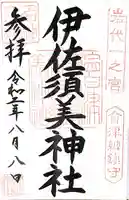 岩代一之宮
会津総鎮守
伊佐須美神社
参拝
令和二年八月八日